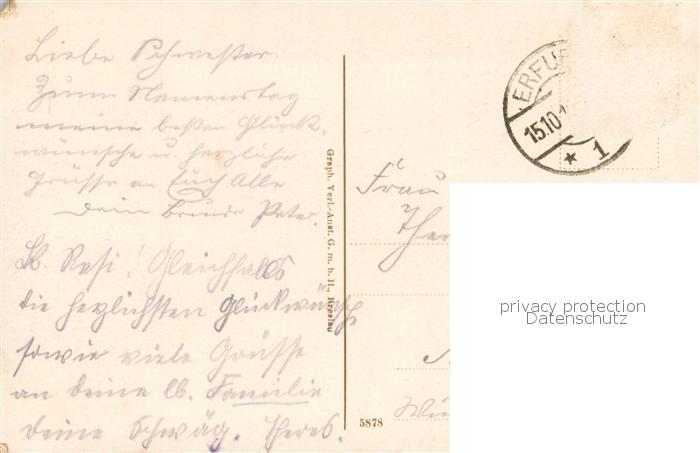 Liebe Schwester
Zum Namenstag
meine besten Glück-
wünsche u. herzliche
Grüsse an Euch Alle
Dein Bruder Peter.
Lb. Resi! Gleichfalls
die herzlichsten Glückwünsche
sowie viele Grüsse
an deine lb. Familie
deine Schwäg. Theres.
Graph. Verl.-Anst. G. m. b. H., Breslau
5878
ERFU
15.10.1
* 1
Frau
Ther
privacy protection
Datenschutz